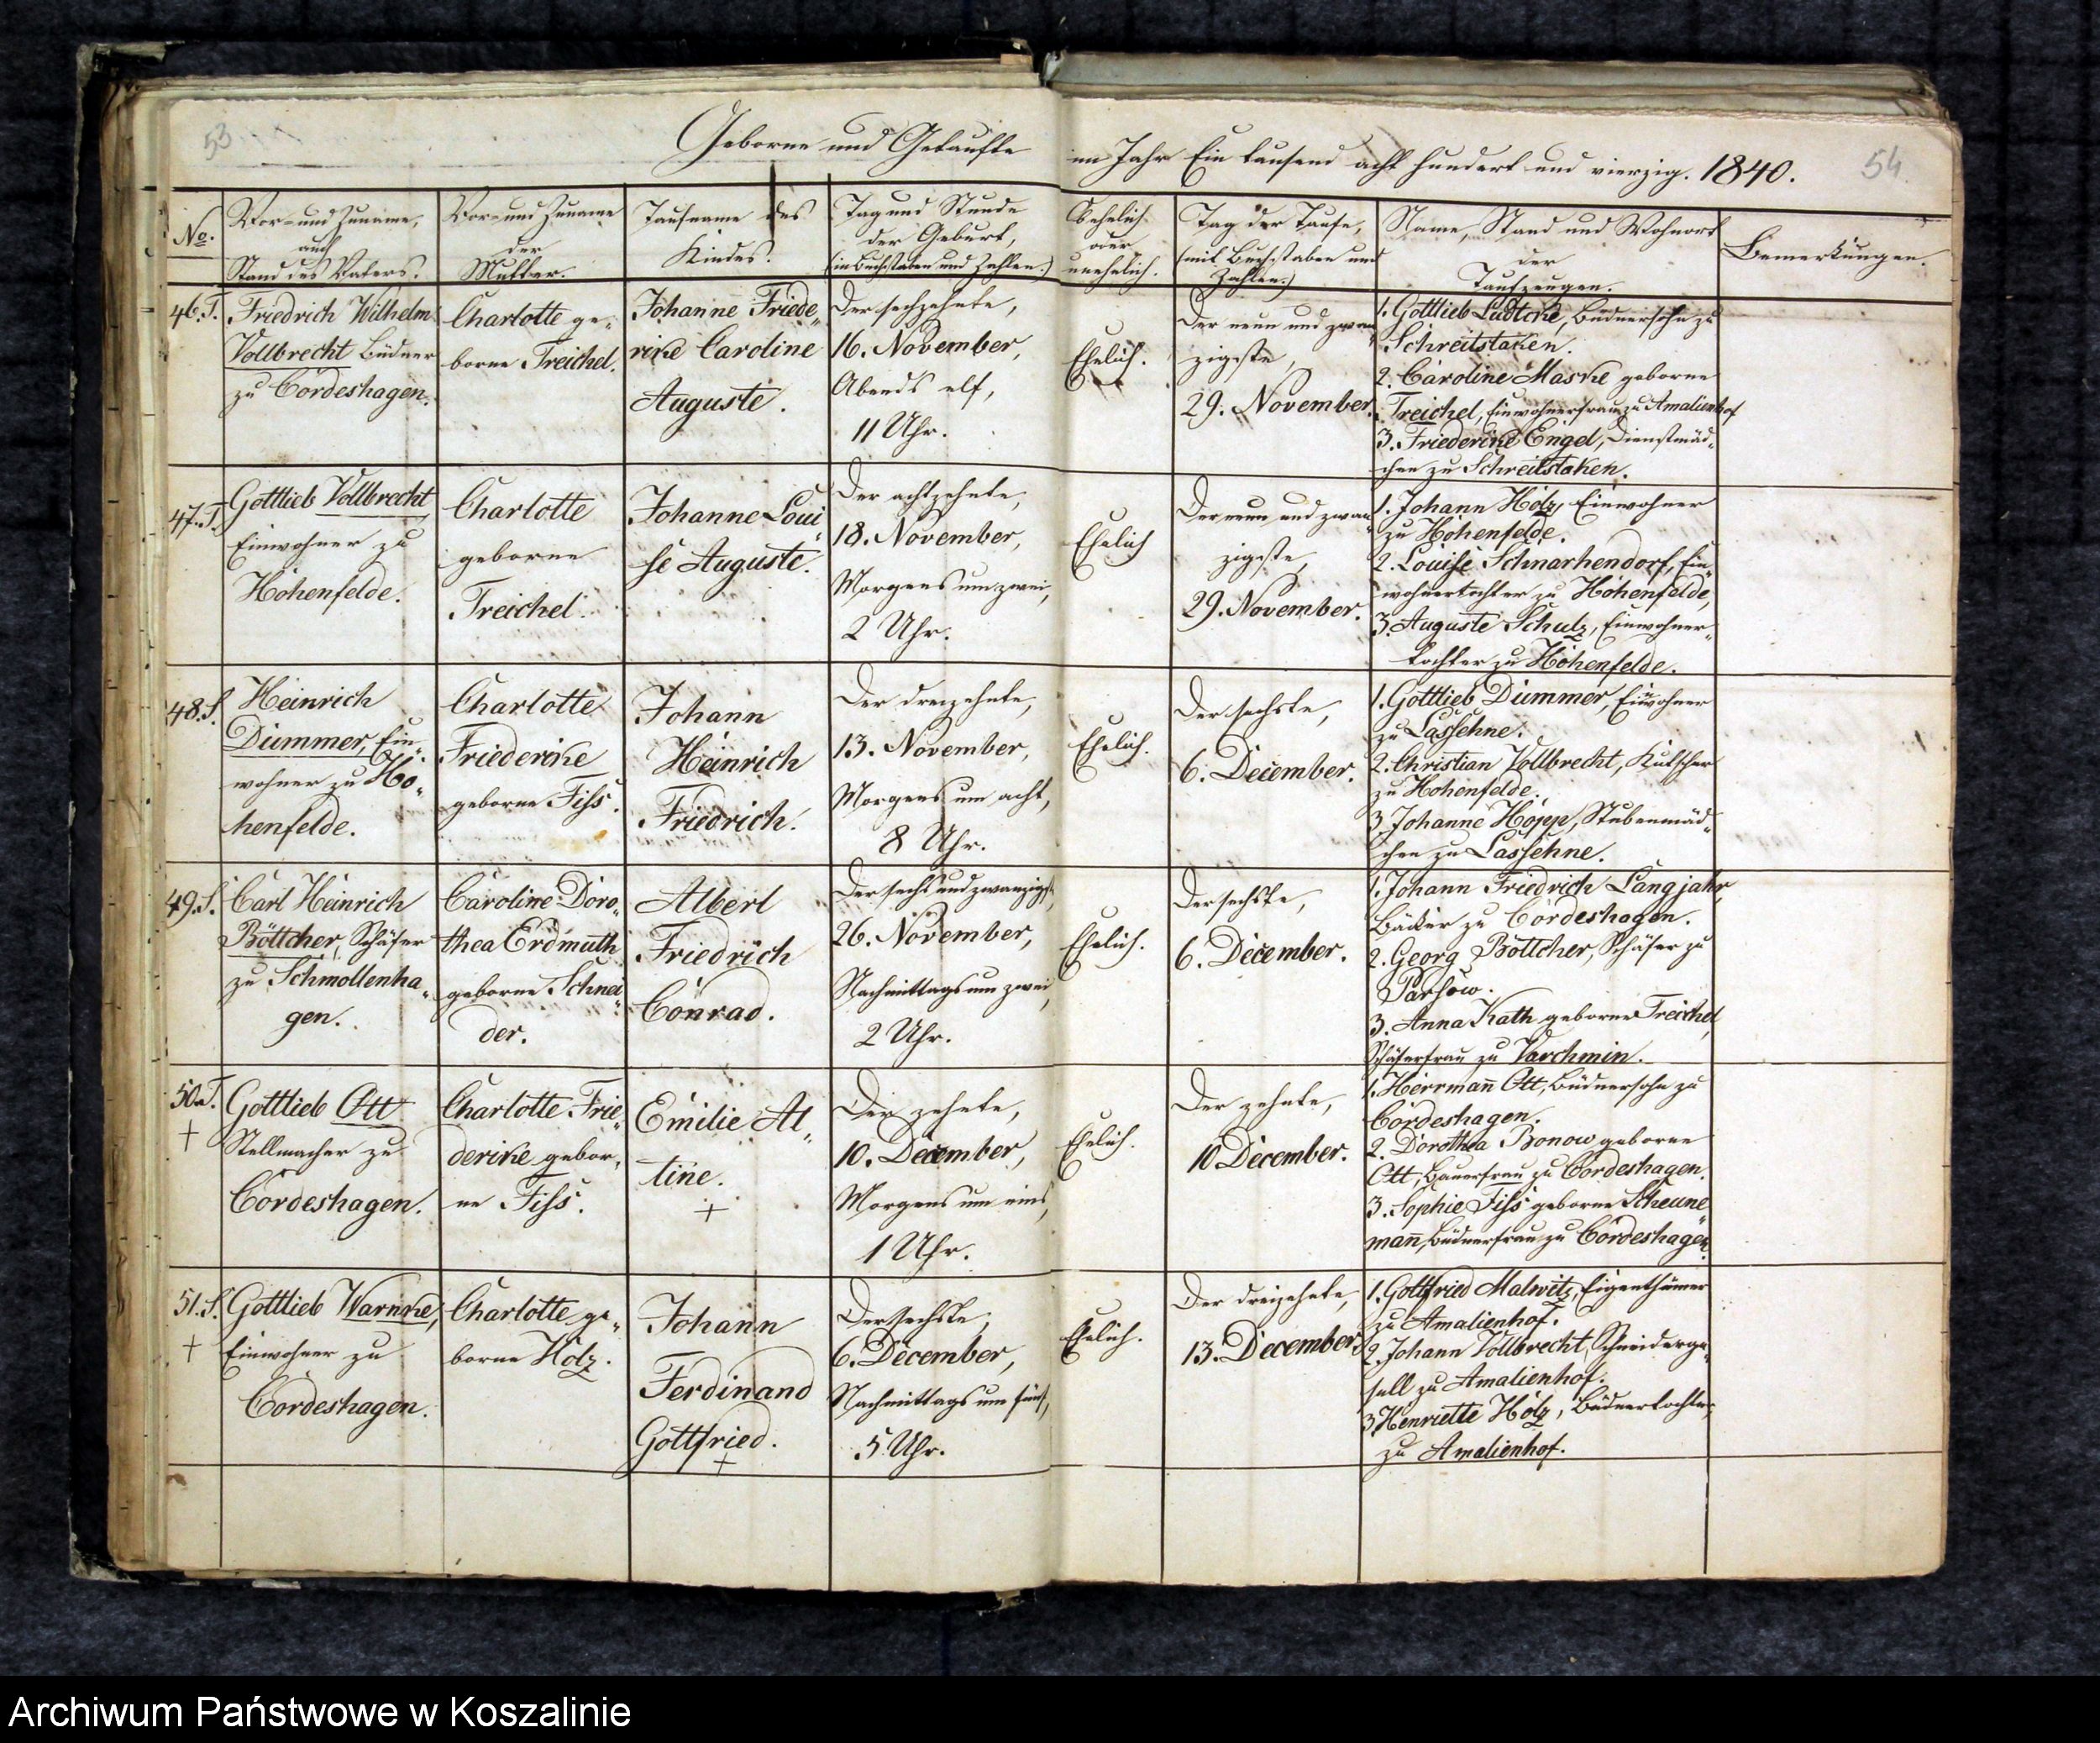 53
54.
Geborne und Getaufte im Jahr Ein tausend acht hundert und vierzig. 1840.
No.
Vor- und Zuname,
auch
Stand des Vaters.
Vor- und Zuname
der
Mutter.
Taufname des
Kindes.
Tag und Stunde
der Geburt,
(in Buchstaben und Zahlen.)
Ob ehelich
oder
unehelich.
Tag der Taufe,
(mit Buchstaben und
Zahlen.)
Name, Stand und Wohnort
der
Taufzeugen.
Bemerkungen.
46. T.
Friedrich Wilhelm
Vollbrecht Büdner
zu Cordeshagen.
Charlotte ge-
borne Treichel.
Johanne Friede-
rike Caroline
Auguste.
Der sechzehnte,
16. November,
Abends elf,
11 Uhr.
Ehelich.
Der neun und zwan-
zigste,
29. November.
1. Gottlieb Lüdtcke, Büdnersohn zu
Schreitstaken.
2. Caroline Maske geborne
Treichel, Einwohnerfrau zu Amalienhof
3. Friederike Engel, Dienstmäd-
chen zu Schreitstaken.
47. T.
Gottlieb Vollbrecht
Einwohner zu
Hohenfelde.
Charlotte
geborne
Treichel.
Johanne Loui-
se Auguste.
Der achtzehnte,
18. November,
Morgens um zwei,
2 Uhr.
Ehelich
Der neun und zwan-
zigste,
29. November.
1. Johann Holz, Einwohner
zu Hohenfelde.
2. Louise Schnarhendorf, Ein-
wohnertochter zu Hohenfelde,
3. Auguste Schulz, Einwohner-
tochter zu Hohenfelde.
48. S.
Heinrich
Dummer, Ein-
wohner zu Ho-
henfelde.
Charlotte
Friederike
geborne Fiss.
Johann
Heinrich
Friedrich.
Der dreizehnte,
13. November,
Morgens um acht,
8 Uhr.
Ehelich.
Der sechste,
6. December.
1. Gottlieb Dummer, Einwohner
zu Lassehne.
2. Christian Vollbrecht, Kutscher
zu Hohenfelde.
3. Johanne Hopp, Stubenmäd-
chen zu Lassehne.
49. S.
Carl Heinrich
Böttcher, Schäfer
zu Schmollenha-
gen.
Caroline Doro-
thea Erdmuth
geborne Schnei-
der.
Albert
Friedrich
Conrad.
Der sechs und zwanzigste,
26. November,
Nachmittags um zwei,
2 Uhr.
Ehelich.
Der sechste,
6. December.
1. Johann Friedrich Langjahr,
Bäcker zu Cordeshagen.
2. Georg Böttcher, Schäfer zu
Parsow.
3. Anna Kath geborne Treichel,
Schäferfrau zu Varchmin.
50. T.
+
Gottlieb Ott
Stellmacher zu
Cordeshagen.
Charlotte Frie-
derike gebor-
ne Fiss.
Emilie Al-
tine.
+
Der zehnte,
10. December,
Morgens um eins,
1 Uhr.
Ehelich.
Der zehnte,
10 December.
1. Herrmann Ott, Büdnersohn zu
Cordeshagen.
2. Dorothea Bonow geborne
Ott, Bauerfrau zu Cordeshagen.
3. Sophie Fiss geborne Scheune-
mann, Büdnerfrau zu Cordeshagen.
51. S.
+
Gottlieb Warnke,
Einwohner zu
Cordeshagen.
Charlotte ge-
borne Holz.
Johann
Ferdinand
Gottfried.
+
Der sechste,
6. December,
Nachmittags um fünf,
5 Uhr.
Ehelich.
Der dreizehnte,
13. December.
1. Gottfried Malwitz, Eigenthümer
zu Amalienhof.
2. Johann Vollbrecht, Schneiderge-
sell zu Amalienhof.
3. Henriette Holz, Büdnertochter
zu Amalienhof.
Archiwum Państwowe w Koszalinie